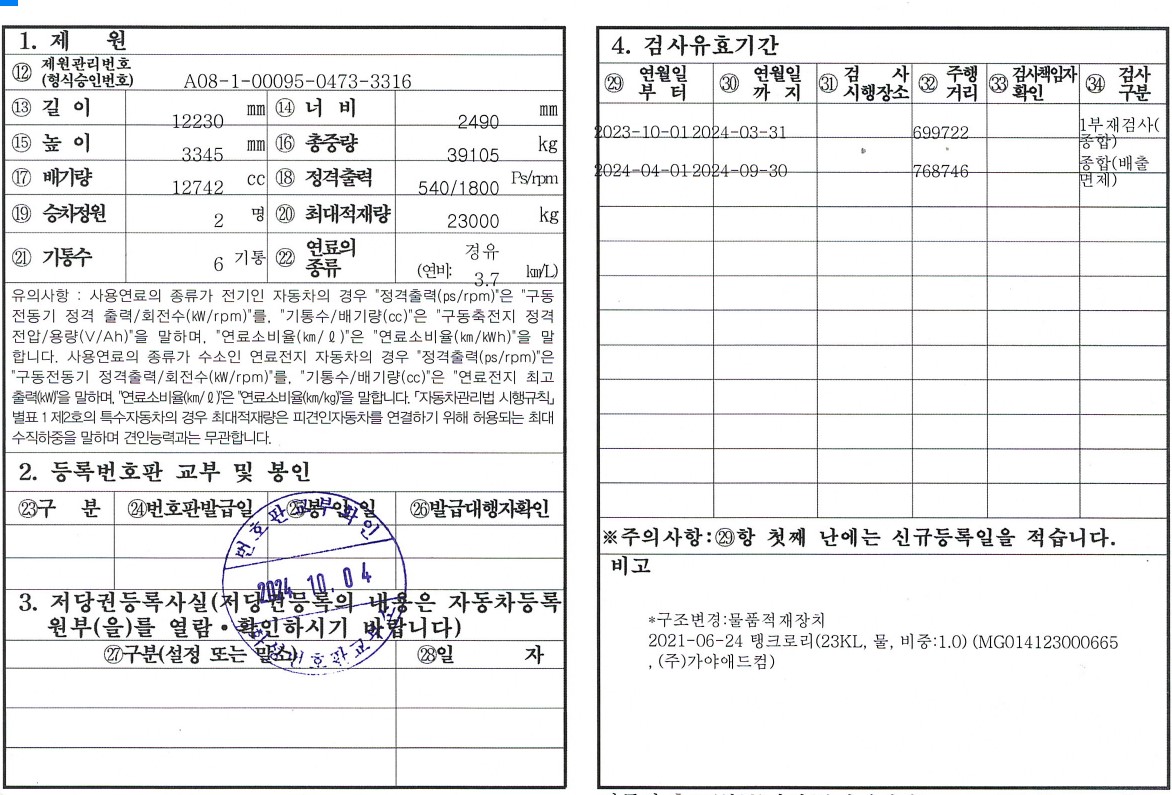 1. 제 원
⑫ 제원관리번호
(형식승인번호) A08-1-00095-0473-3316
⑬ 길 이 12230 mm ⑭ 너 비 2490 mm
⑮ 높 이 3345 mm ⑯ 총중량 39105 kg
⑰ 배기량 12742 cc ⑱ 정격출력 540/1800 Ps/rpm
⑲ 승차정원 2 명 ⑳ 최대적재량 23000 kg
㉑ 기통수 6 기통 ㉒ 연료의 종류 경유
(연비: 3.7 ㎞/L)
유의사항 : 사용연료의 종류가 전기인 자동차의 경우 "정격출력(ps/rpm)"은 "구동
전동기 정격 출력/회전수(kW/rpm)"를, "기통수/배기량(cc)"은 "구동축전지 정격
전압/용량(V/Ah)"을 말하며, "연료소비율(㎞/ℓ)"은 "연료소비율(㎞/kWh)"을 말
합니다. 사용연료의 종류가 수소인 연료전지 자동차의 경우 "정격출력(ps/rpm)"은
"구동전동기 정격출력/회전수(kW/rpm)"를, "기통수/배기량(cc)"은 "연료전지 최고
출력(kW)"을 말하며, "연료소비율(㎞/ℓ)"은 "연료소비율(㎞/kg)"을 말합니다. 「자동차관리법 시행규칙」
별표 1 제2호의 특수자동차의 경우 최대적재량은 피견인자동차를 연결하기 위해 허용되는 최대
수직하중을 말하며 견인능력과는 무관합니다.
2. 등록번호판 교부 및 봉인
㉓구 분 ㉔번호판발급일 ㉕봉인일 ㉖발급대행자확인
번호판교부확인
2024. 10. 04
3. 저당권등록사실(저당권등록의 내용은 자동차등록
원부(을)를 열람·확인하시기 바랍니다)
㉗구분(설정 또는 말소) ㉘일 자
4. 검사유효기간
㉙ 연월일 부터 ㉚ 연월일 까지 ㉛ 검 사 시행장소 ㉜ 주행 거리 ㉝ 검사책임자 확인 ㉞ 검사 구분
2023-10-01 2024-03-31 699722 1부재검사(
종합)
2024-04-01 2024-09-30 768746 종합(배출
면제)
※주의사항:㉙항 첫째 난에는 신규등록일을 적습니다.
비고
*구조변경:물품적재장치
2021-06-24 탱크로리(23KL, 물, 비중:1.0) (MG014123000665
, (주)가야애드컴)